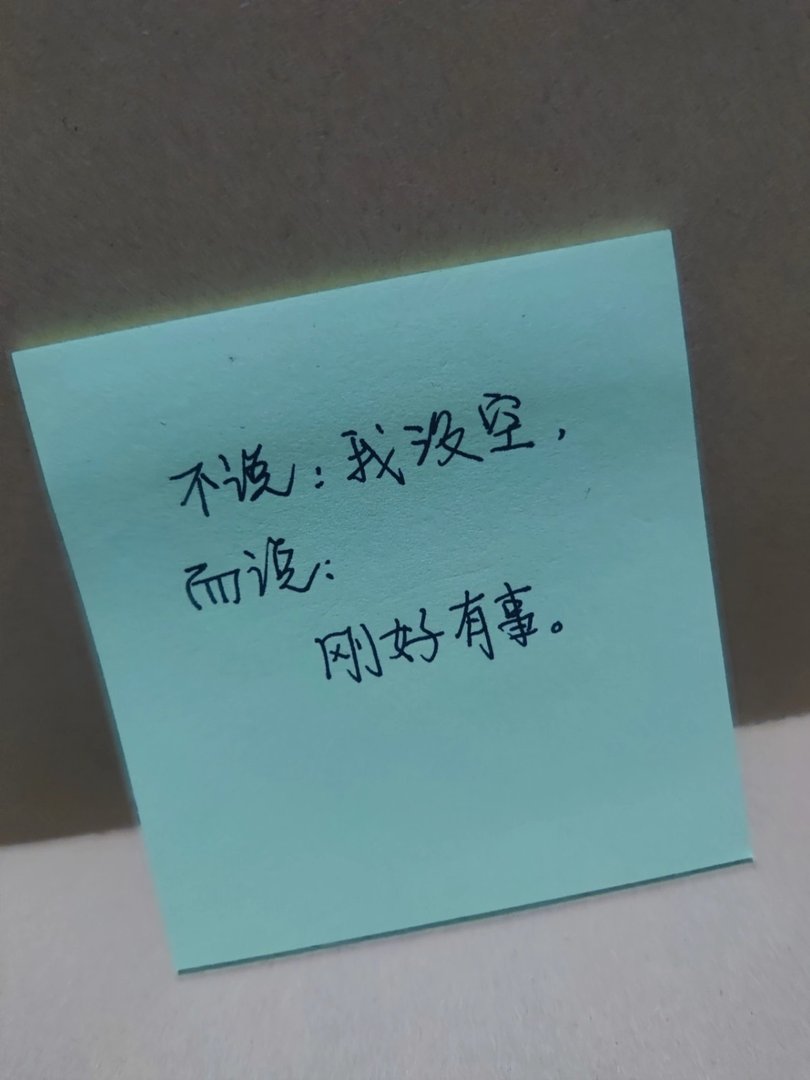 不说：我没空，
而说：
刚好有事。